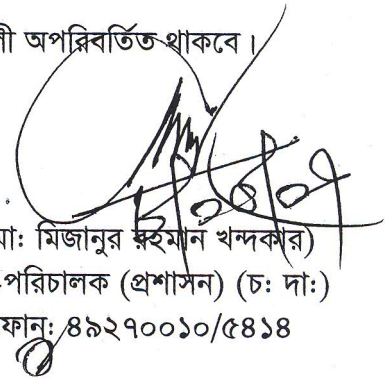 ী অপরিবর্তিত থাকবে।
মা: মিজানুর রহমান খন্দকার)
-পরিচালক (প্রশাসন) (চ: দা:)
ফান: ৪৯২৭০০১০/৫৪১৪